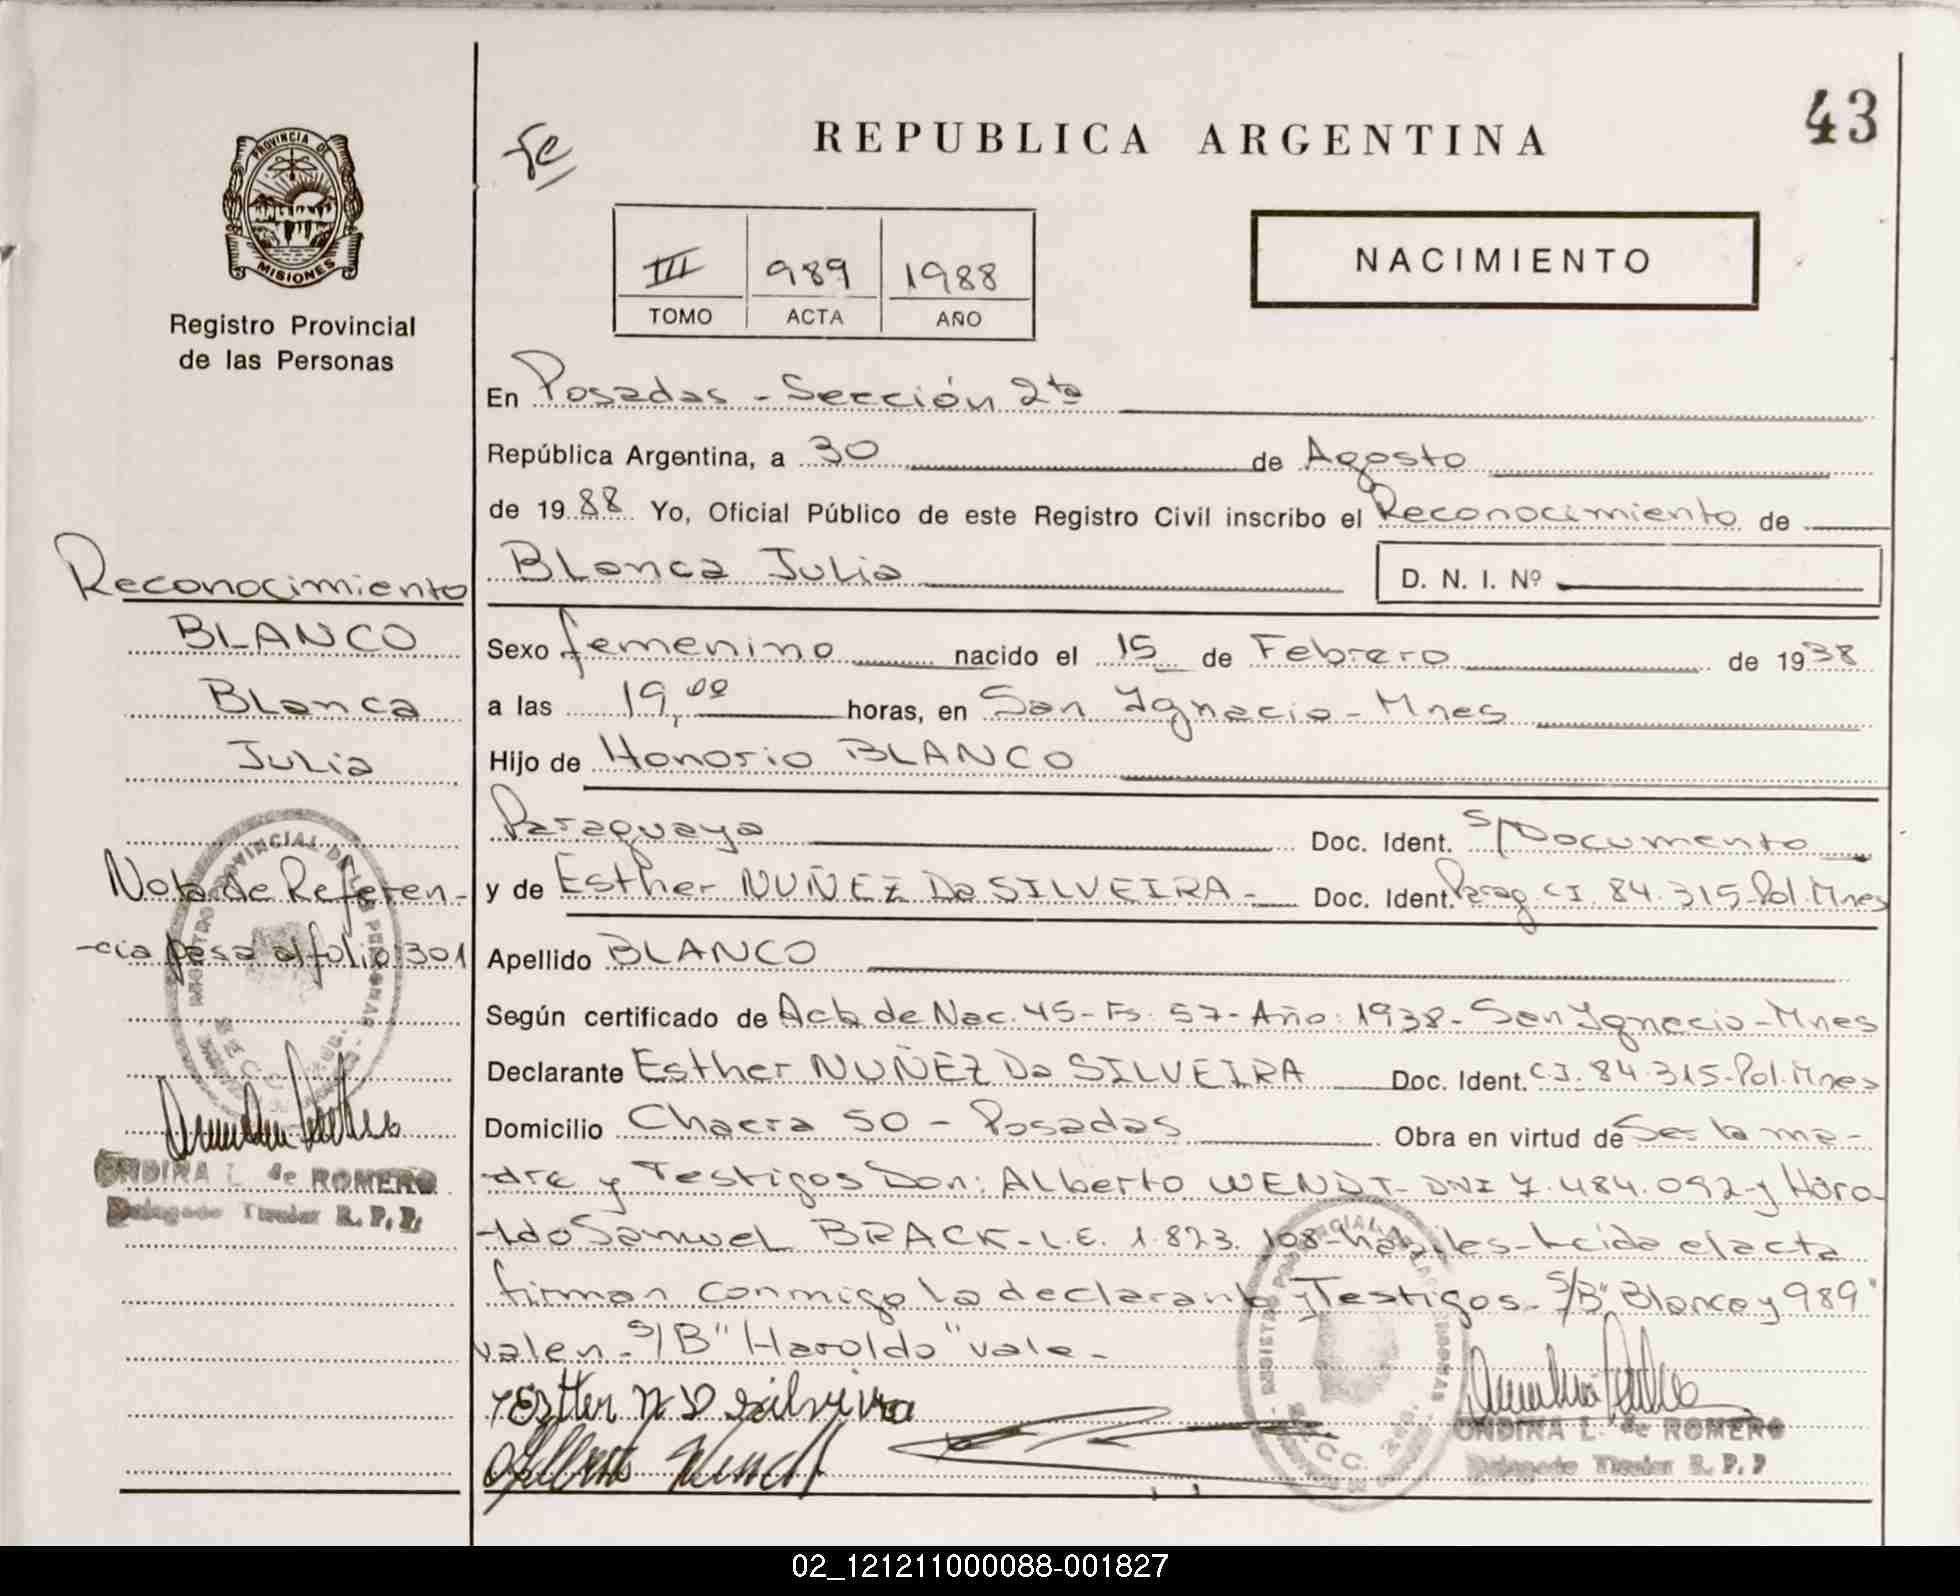 43
REPUBLICA ARGENTINA
PROVINCIA DE
MISIONES
Registro Provincial
de las Personas
III 989 1988
TOMO ACTA AÑO
NACIMIENTO
En Posadas - Sección 2ta
República Argentina, a 30 de Agosto
de 1988 Yo, Oficial Público de este Registro Civil inscribo el Reconocimiento de
Blanca Julia D. N. I. Nº
Sexo femenino nacido el 15 de Febrero de 1938
a las 19,00 horas, en San Ignacio - Mnes
Hijo de Honorio BLANCO
Paraguaya Doc. Ident. S/Documento
y de Esther NUÑEZ Da SILVEIRA - Doc. Ident. Parag. C.I. 84.315-Pol.Mnes
Apellido BLANCO
Según certificado de Acta de Nac. 45 - Fs. 57 - Año: 1938 - San Ignacio - Mnes
Declarante Esther NUÑEZ Da SILVEIRA Doc. Ident. C.I. 84.315-Pol.Mnes
Domicilio Chacra 50 - Posadas Obra en virtud de Ser la ma-
-dre y Testigos Don: Alberto WENDT - DNI 7.484.092 - y Haro-
-ldo Samuel BRACK - L.E. 1.823.108 - habiles - Leida el acta
firman conmigo la declarante y Testigos - S/B "Blanco y 989"
valen - S/B "Haroldo" vale -
Esther N D Silveira
ONDINA L. de ROMERO
Delegado Titular R. P. P.
Reconocimiento
BLANCO
Blanca
Julia
Nota de Referen-
-cia pasa al folio: 301
REGISTRO PROVINCIAL DE LAS PERSONAS
ONDINA L. de ROMERO
Delegado Titular R. P. P.
02_121211000088-001827